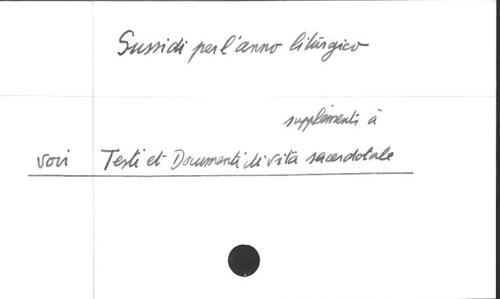 Sussidi per l'anno liturgico
suppléments à
voir Testi et Documenti di vita sacerdotale